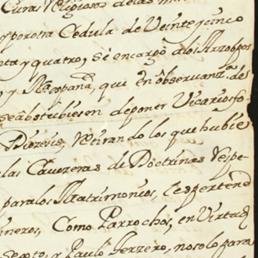 Curas Religiosos de las
por otra Cedula de Veinte y cinco
ta y quatro, se encargó a los Arzobpos
y Mexpana, qui en observanz. de
se abstubiesen de poner Vicarios fo
Diozesis, retirando los que hubie
las Cavezeras de Doctrinas Y espe
para los Matrimonios, les pertene
Como Parrochos, en Virtud
Quarto, y Paulo terzero, no solo para